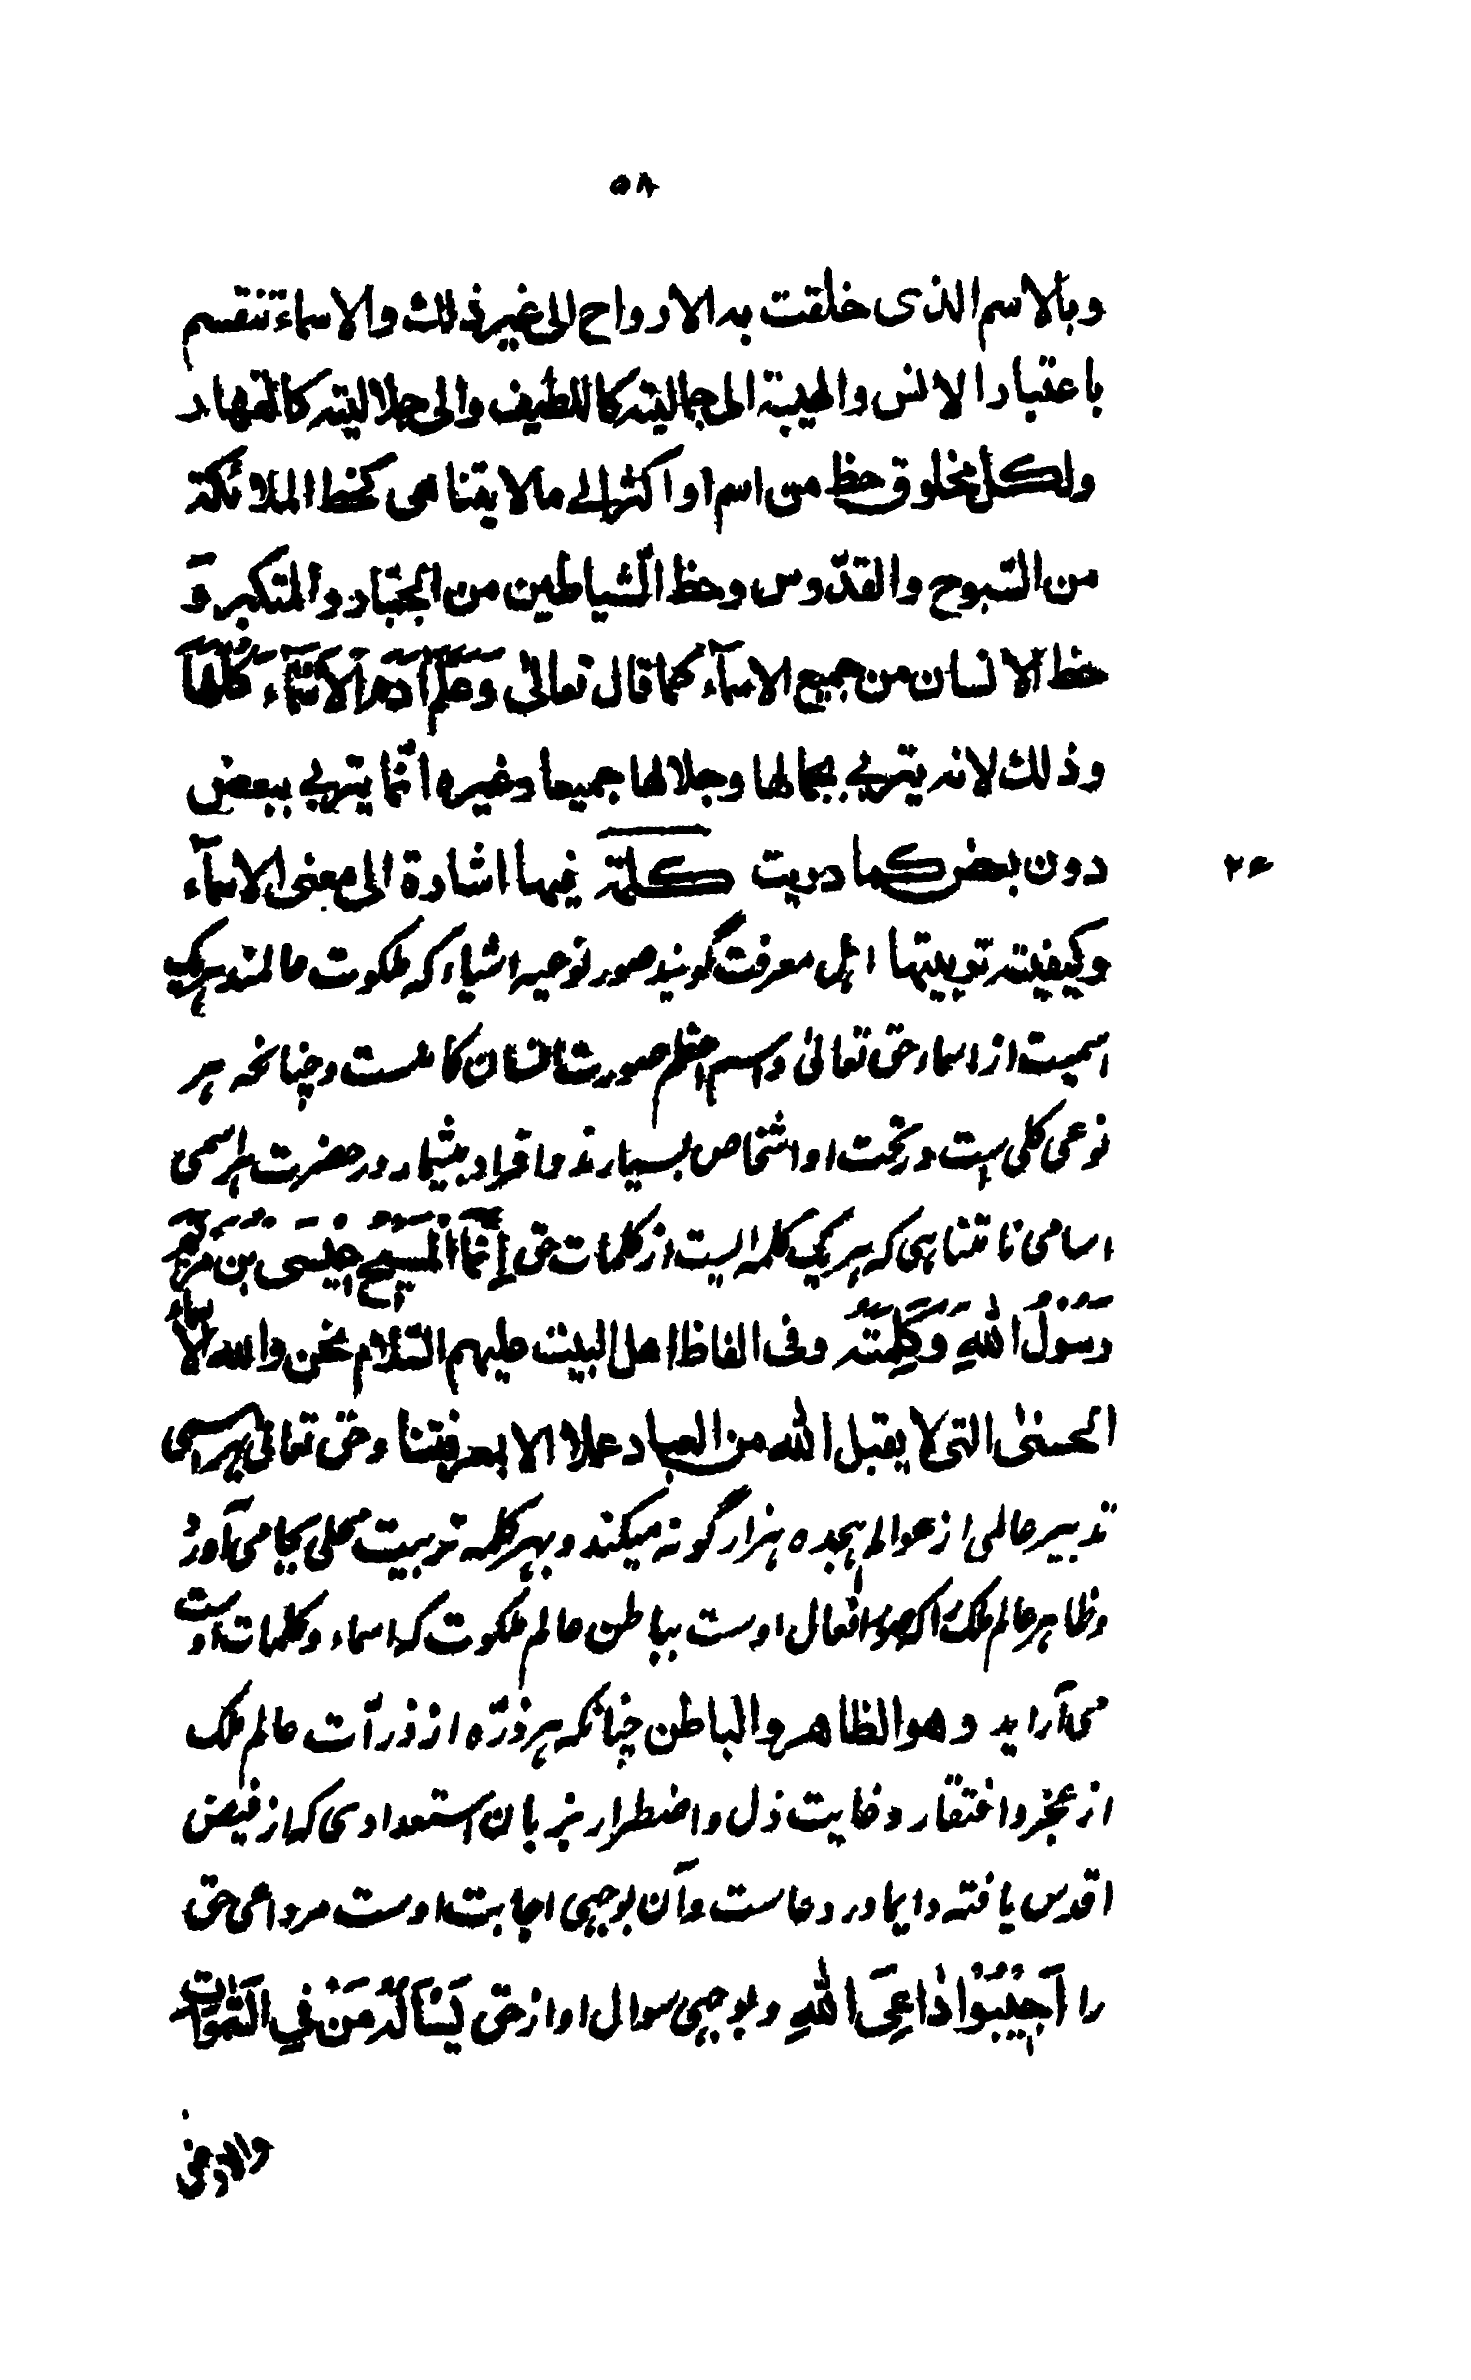 ۵۸
وبالاسم الذی خلقت به الارواح الی غیر ذلك والاسماء تنقسم
باعتبار الانس والهیبة الی جمالیته کاللطیف والی جلالیته کالقهار
ولکل مخلوق حظ من اسم او اکثر الی ما لا یتناهی کحظ الملائکة
من السّبوح والقدّوس وحظ الشّیاطین من الجبّار والمتکبر وَ
حظ الانسان من جمیع الاسمآء کما قال تعالیٰ وَعَلَّمَ اٰدَمَ الْاَسْمَآءَ کُلَّهَا
وذلك لانه یتربی بجمالها وجلالها جمیعا وغیره انّما یتربی ببعض
دون بعض کما دریت کلمة فیها اشارة الی معنی الاسمآء
۲۶
وکیفیته تربیتها اهل معرفت گویند صور نوعیه اشیاء که ملکوت عالمند هریک
اسمیست از اسماء حق تعالیٰ و اسم اعظم صورت انسان کاملست و چنانچه هر
نوعی کلی است و در تحت او اشخاص بسیارند و افراد بیشمار در حضرت هر اسمی
اسامی نامتناهی که هر یک کلمه ایست از کلمات حق اِنَّمَا الْمَسِیْحُ عِیْسَی بْنُ مَرْیَمَ
رَسُوْلُ اللهِ وَکَلِمَتُهُ وفی الفاظ اهل البیت علیهم السّلام نحن والله الاسماء
الحسنیٰ التی لا یقبل الله من العباد عملا الا بمعرفتنا وحق تعالی بهر اسمی
تدبیر عالمی از عوالم هیجده هزار گونه میکند و بهر کلمه تربیت محلی بجا می‌آورد
وظاهر عالم ملک را که صور افعال اوست بباطن عالم ملکوت که اسماء وکلمات اوست
می‌آراید وهو الظاهر والباطن چنانکه هر ذرّه از ذرّات عالم ملک
از عجز و افتقار و غایت ذل و اضطرار بزبان استعدادی که از فیض
اقدس یافته دایما در دعاست و آن بوجهی اجابت اوست مر داعی حق
را اَجِیْبُوْا دَاعِیَ اللهِ و بوجهی سوال او از حق یَسْاَلُهُ مَنْ فِی السَّمٰوَاتِ
والارض